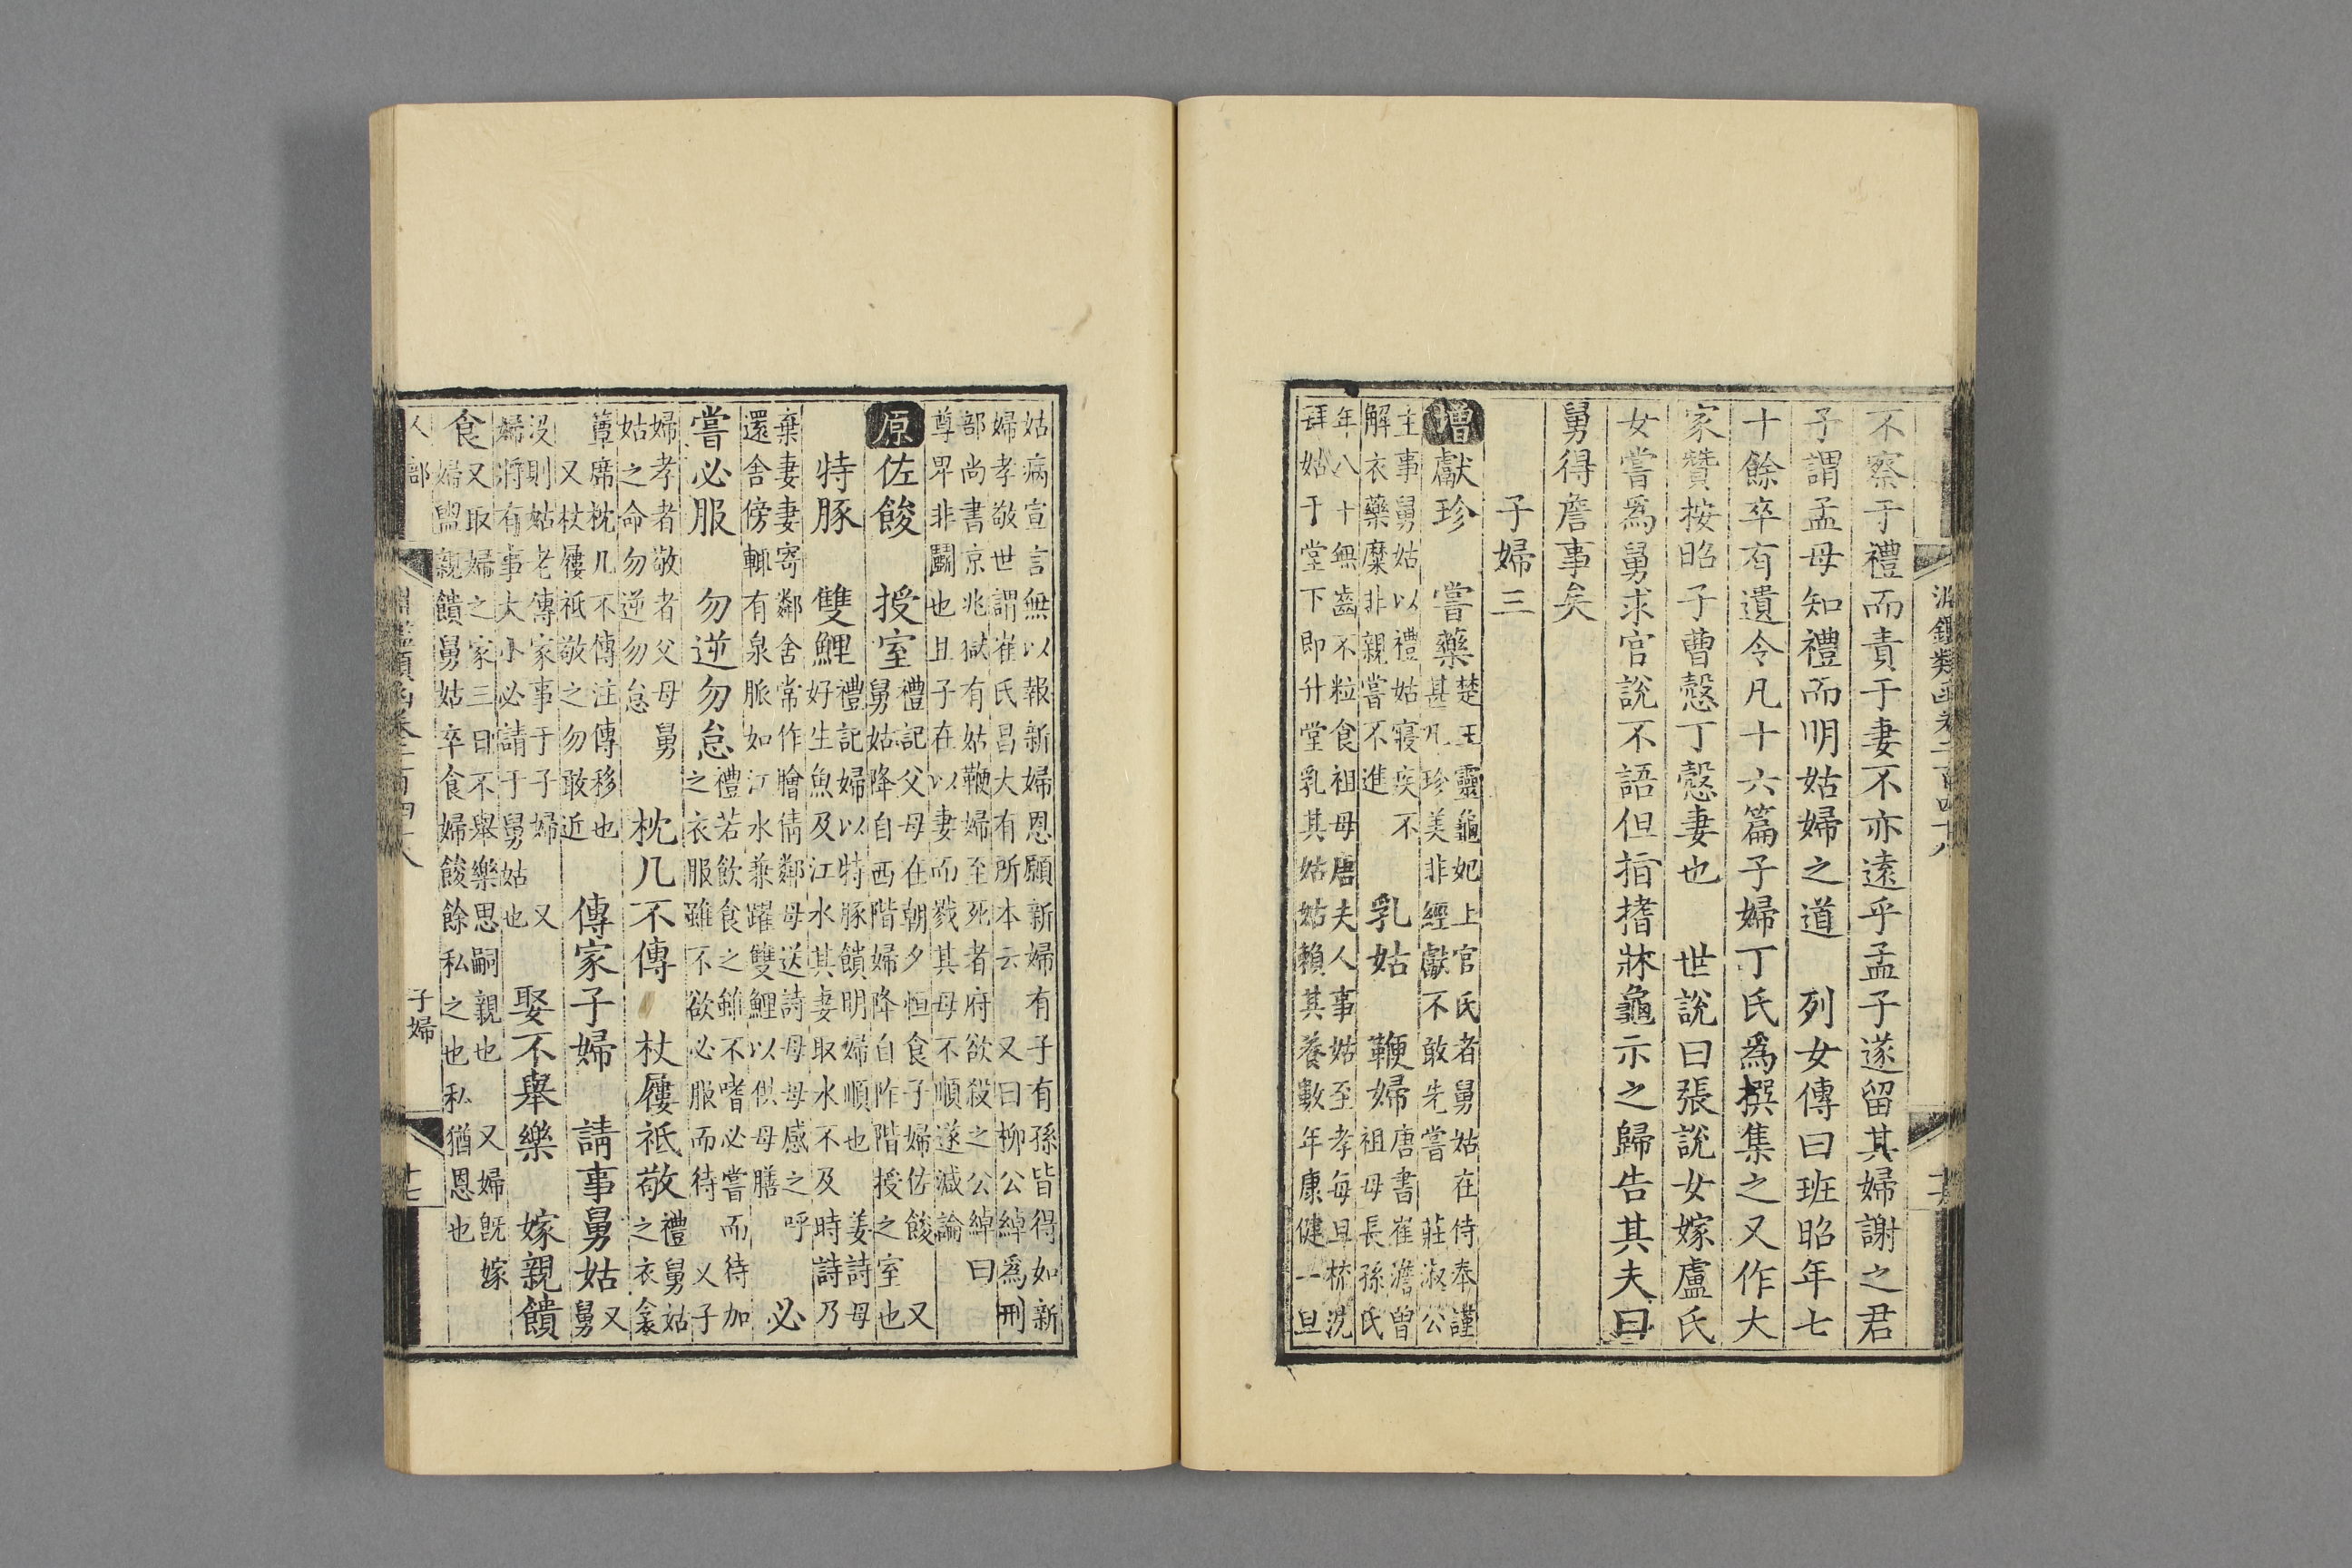 鑑類函卷二百四十八
不察于禮而責于妻不亦遠乎孟子遂留其婦謝之君
子謂孟母知禮而明姑婦之道　列女傳曰班昭年七
十餘卒有遺令凡十六篇子婦丁氏爲撰集之又作大
家贊按昭子曹愨丁愨妻也　世說曰張說女嫁盧氏
女嘗爲舅求官說不語但指搘牀龜示之歸告其夫曰
舅得詹事矣
子婦三
增獻珍　嘗藥
楚王靈龜妃上官氏者舅姑在侍奉謹
甚凡珍美非經獻不敢先嘗　莊淑公
主事舅姑以禮姑寢疾不
解衣藥糜非親嘗不進
乳姑　鞭婦
唐書崔澹曾
祖母長孫氏
年八十無齒不粒食祖母唐夫人事姑至孝每旦梳洗
拜姑于堂下即升堂乳其姑姑賴其養數年康健一旦
姑病宣言無以報新婦恩願新婦有子有孫皆得如新
婦孝敬世謂崔氏昌大有所本云　又曰柳公綽爲刑
部尚書京兆獄有姑鞭婦至死者府欲殺之公綽曰
尊卑非鬭也且子在以妻而戮其母不順遂減論
原佐餕　授室
禮記父母在朝夕恒食子婦佐餕　又
舅姑降自西階婦降自阼階授之室也
特豚　雙鯉
禮記婦以特豚饋明婦順也　姜詩母
好生魚及江水其妻取水不及時詩乃
棄妻妻寄鄰舍常作膾倩鄰母送詩母母感之呼
還舍傍輒有泉脈如江水兼躍雙鯉以供母膳
必
嘗必服　勿逆勿怠
禮若飲食之雖不嗜必嘗而待加
之衣服雖不欲必服而待　又子
婦孝者敬者父母舅
姑之命勿逆勿怠
枕几不傳　杖屨祗敬
禮舅姑
之衣衾
簟席枕几不傳注傳移也
又杖屨祗敬之勿敢近
傳家子婦　請事舅姑
又
舅
沒則姑老傳家事于子婦　又
婦將有事大小必請于舅姑也
娶不舉樂　嫁親饋
食
又取婦之家三日不舉樂思嗣親也　又婦既嫁
婦盥親饋舅姑卒食婦餕餘私之也私猶恩也
人部
鑑類函卷二百四十八
子婦
十七